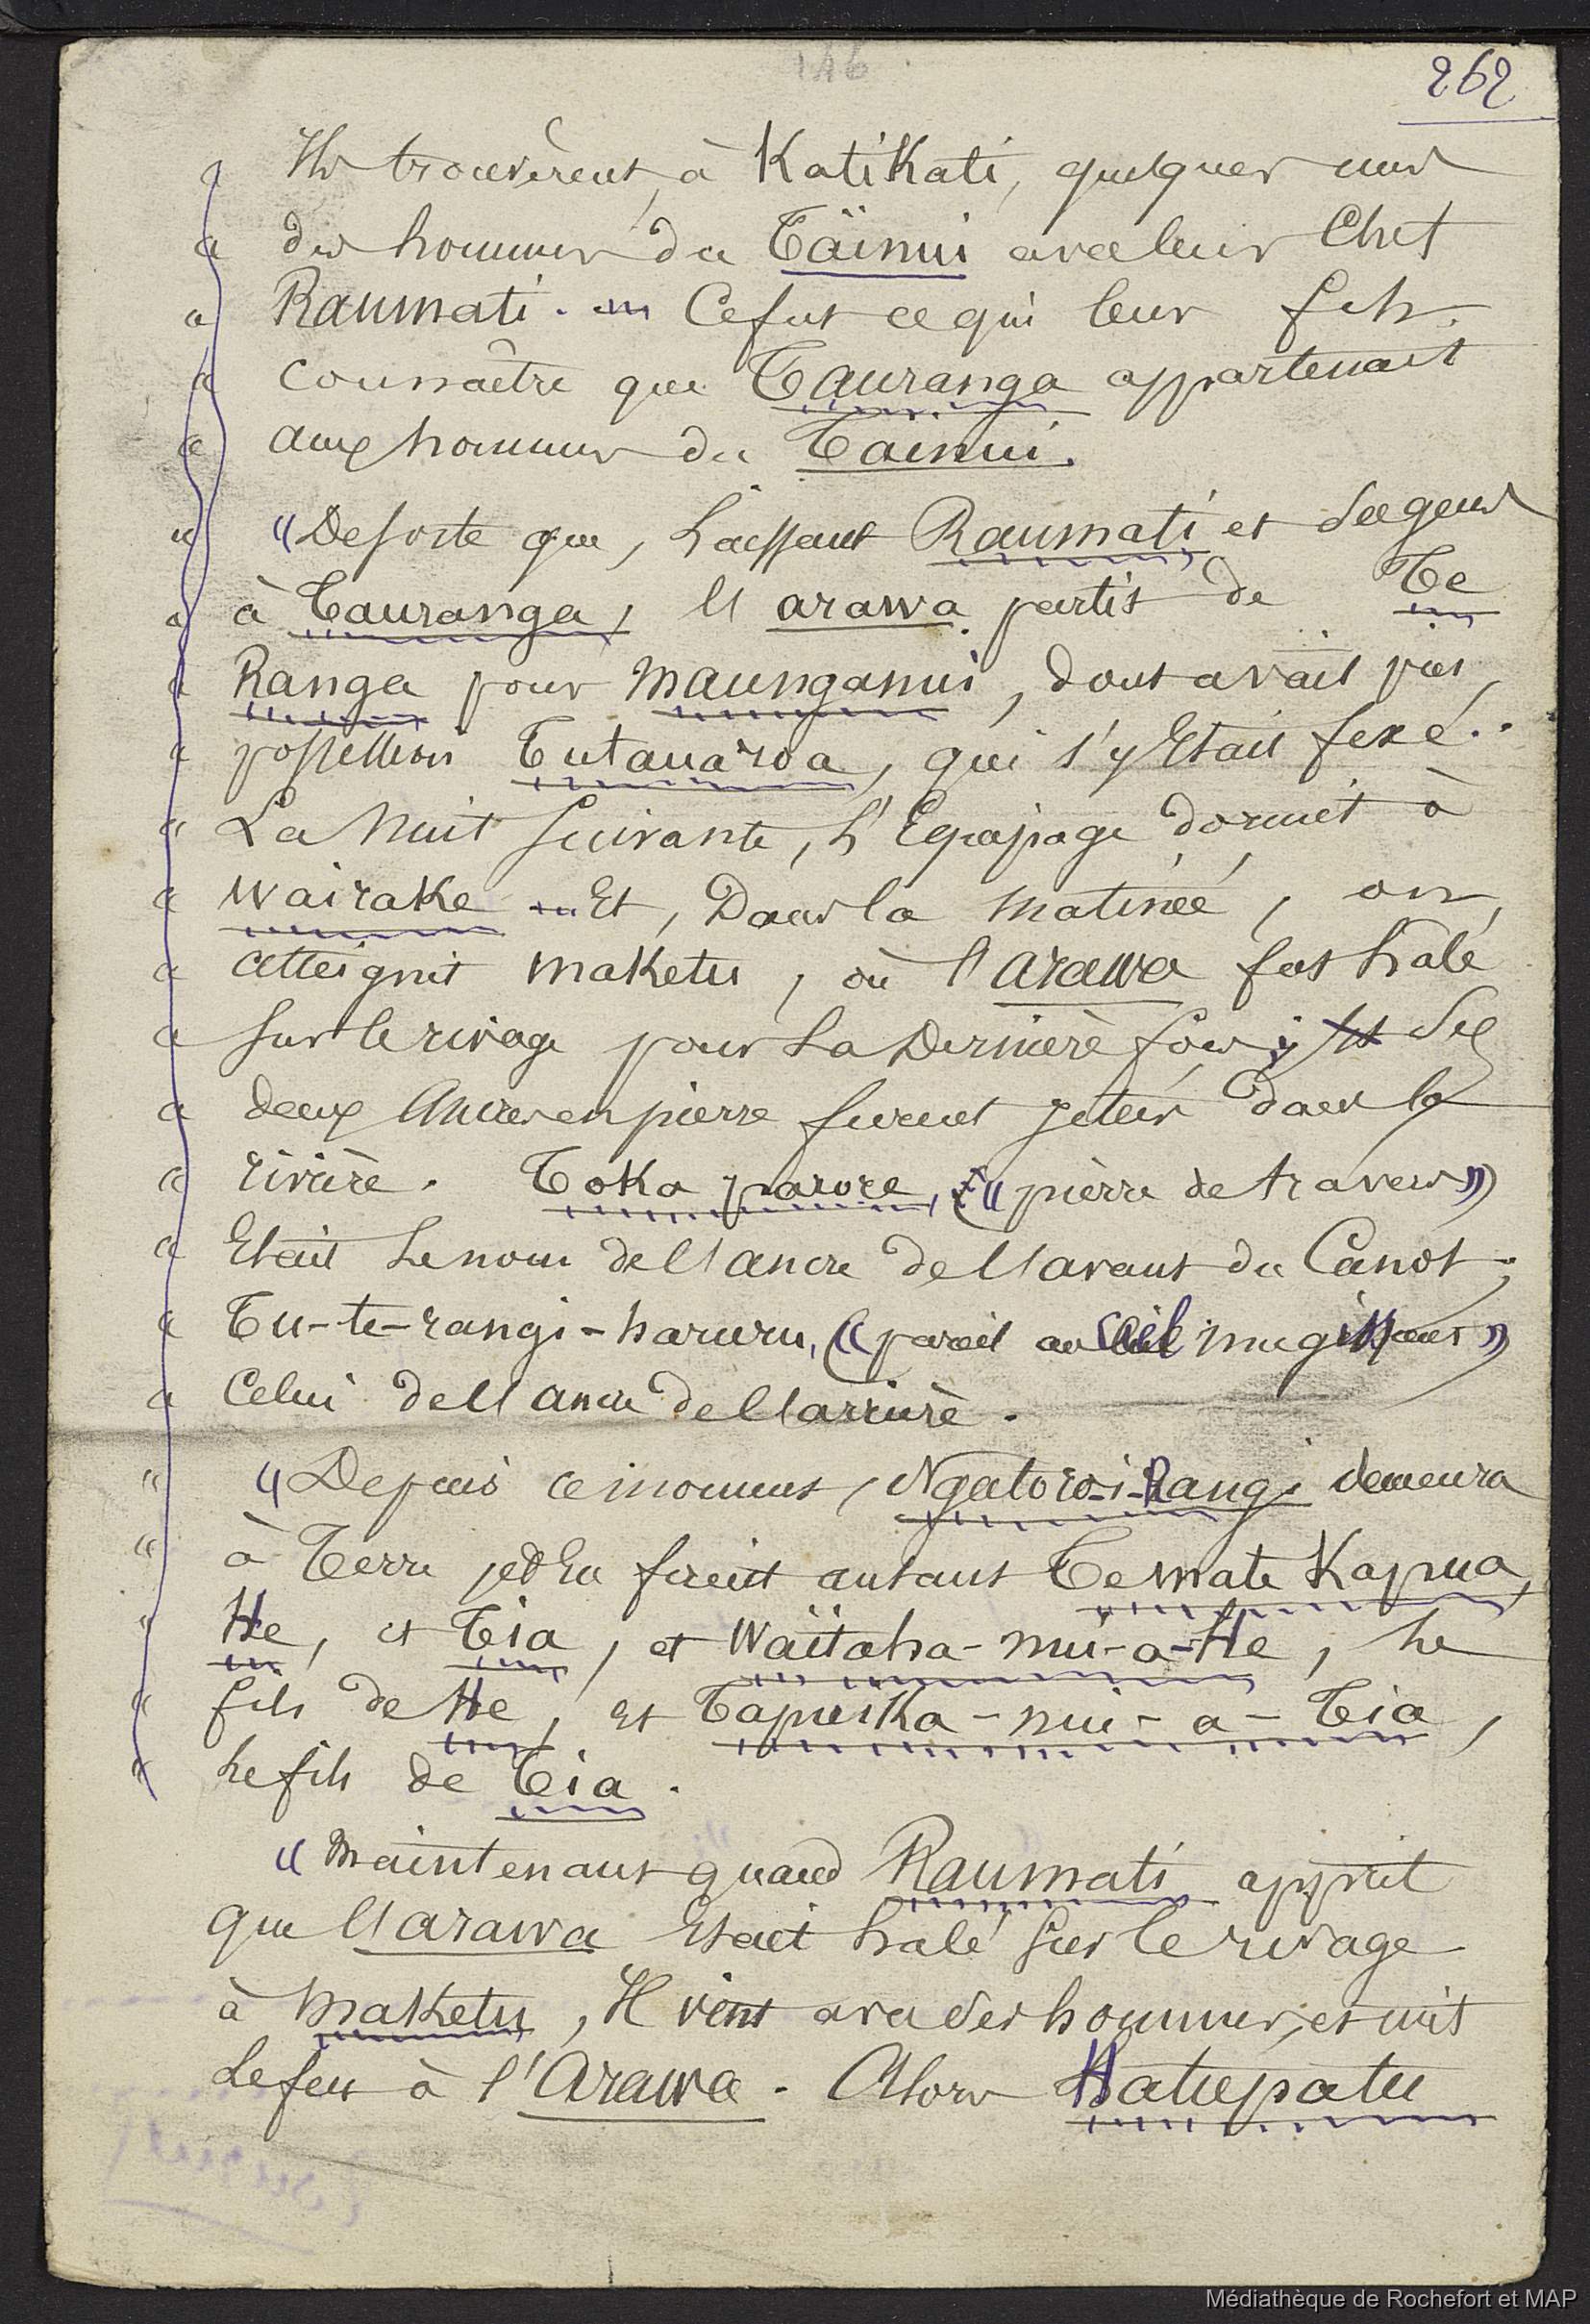 146
262
« Ils trouvèrent, à KatiKati, quelques uns
« des hommes du Täinui avec leur Chef
« Raumati. — Ce fut ce qui leur fit
« connaître que Tauranga appartenait
« aux hommes du Tainui.
« "De sorte que, Laissant Raumati et Ses gens
« à Tauranga, l'arawa partit de Te
« Ranga pour Maunganui, dont avait pris
« possession Tutauaroa, qui s'y Etait fixé..
« La Nuit Suivante, L'Equipage dormit à
« Wairake — Et, Dans la Matinée, on
« atteignit Maketu, où l'arawa fut halé
« Sur le rivage pour La Dernière fois; Ses
« deux Ancres en pierre furent jetées dans la
« rivière. Toka parore, ("pierre de travers")
« Etait Le nom de l'ancre de l'avant du Canot;
« Tu-te-rangi-haruru, ("pareil au Ciel mugissant")
« Celui de l'ancre de l'arrière.
« "Depuis ce moment, Ngatoro-i-Rangi demeura
« à Terre, et En firent autant Te mate Kapua,
« He, et Tia, et Waïtaha-nui-a-He, Le
« fils de He, et Tapuika-nui-a-Tia,
« Le fils de Tia.
"Maintenant quand Raumati apprit
que l'arawa Etait halé Sur le rivage
à Maketu, Il vint avec des hommes, et mit
Le feu à l'Arawa. Alors Hatupatu
Médiathèque de Rochefort et MAP